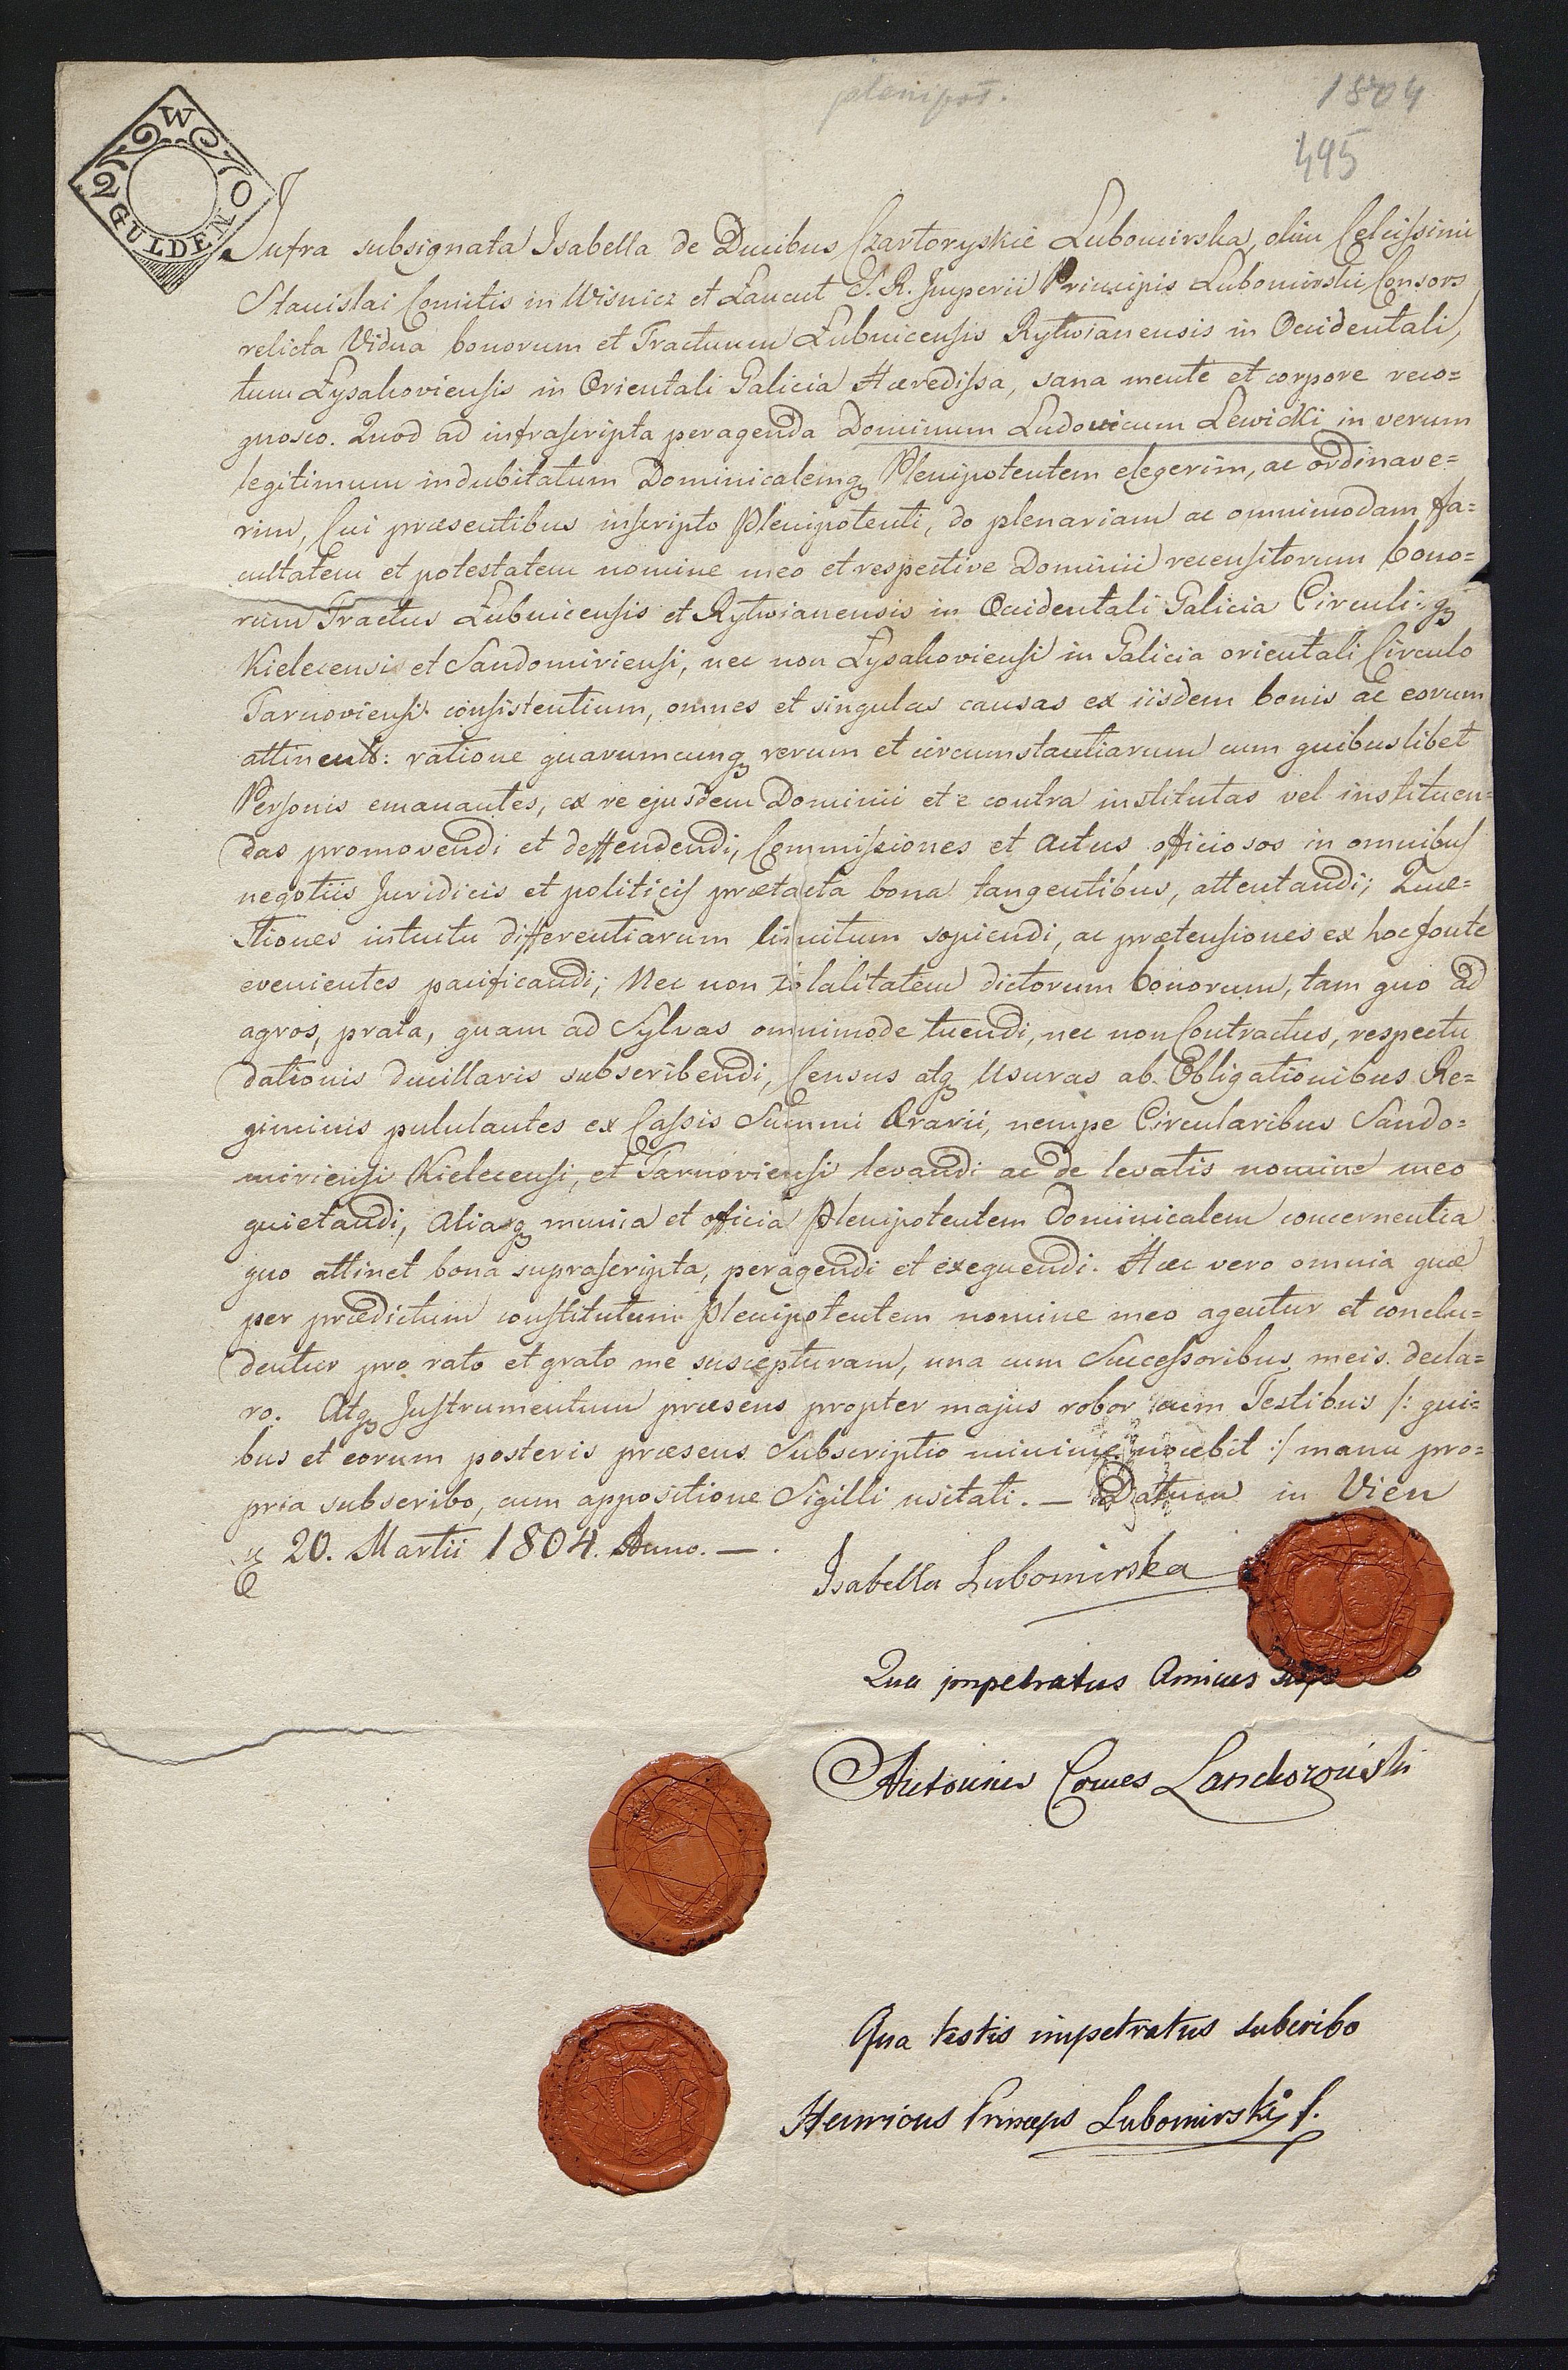 plenipot.
1804
495
W
2 0
GULDEN
Infra subsignata Isabella de Ducibus Czartoryskie Lubomirska, olim Celcissimi
Stanislai Comitis in Wisnicz et Łancut S. R. Imperii Principis Lubomirski Consors
relicta Vidua bonorum et Tractuum Łubnicensis Rytwianensis in Occidentali,
tum Łysakoviensis in Orientali Galicia Hæredissa, sana mente et corpore reco=
gnosco. Quod ad infrascripta peragenda Dominum Ludovicum Lewicki in verum
legitimum indubitatum Dominicalemq Plenipotentem elegerim, ac ordinave=
rim, Cui præsentibus inscripto Plenipotenti, do plenariam ac omnimodam fa=
cultatem et potestatem nomine meo et respective Dominii recensitorum bono=
rum Tractus Łubnicensis et Rytwianensis in Occidentali Galicia Circuli:q
Kielecensi et Sandomiriensi, nec non Łysakoviensi in Galicia orientali Circulo
Tarnoviensi consistentium, omnes et singulas causas ex iisdem bonis ac eorum
attinents: ratione quarumcunq rerum et circumstantiarum cum quibuslibet
Personis emanantes, ex re ejusdem Dominii et e contra institutas vel instituen=
das promovendi et deffendendi, Commissiones et Actus officiosos in omnibus
negotiis Juridicis et politicis prætacta bona tangentibus, attentandi; Quæ=
stiones intuitu differentiarum limitum sopiendi, ac prætensiones ex hoc fonte
evenientes pacificandi; Nec non totalitatem dictorum bonorum, tam quo ad
agros, prata, quam ad Sylvas omnimode tuendi, nec non Contractus, respectu
dationis ducillaris subscribendi, Census atq Usuras ab Obligationibus Re=
giminis pululantes ex Cassis Summi Ærarii, nempe Circularibus Sando=
miriensi Kielecensi, et Tarnoviensi levandi ac de levatis nomine meo
quietandi, Aliaq munia et officia Plenipotentem Dominicalem concernentia
quo attinet bona suprascripta, peragendi et exequendi. Hæc vero omnia quæ
per prædictum constitutum Plenipotentem nomine meo agentur et conclu=
dentur pro rato et grato me suscepturam, una cum Successoribus meis decla=
ro. Atq Instrumentum præsens propter majus robor cum Testibus /: qui=
bus et eorum posteris præsens Subscriptio minime nocebit :/ manu pro=
pria subscribo, cum appositione Sigilli usitati. — Datum in Vien
20. Martii 1804. Anno. —.
Isabella Lubomirska
Qua impetratus Amicus
Antonius Comes Lanckoroński
Qua testis impetratus subcribo
Henricus Princeps Lubomirski